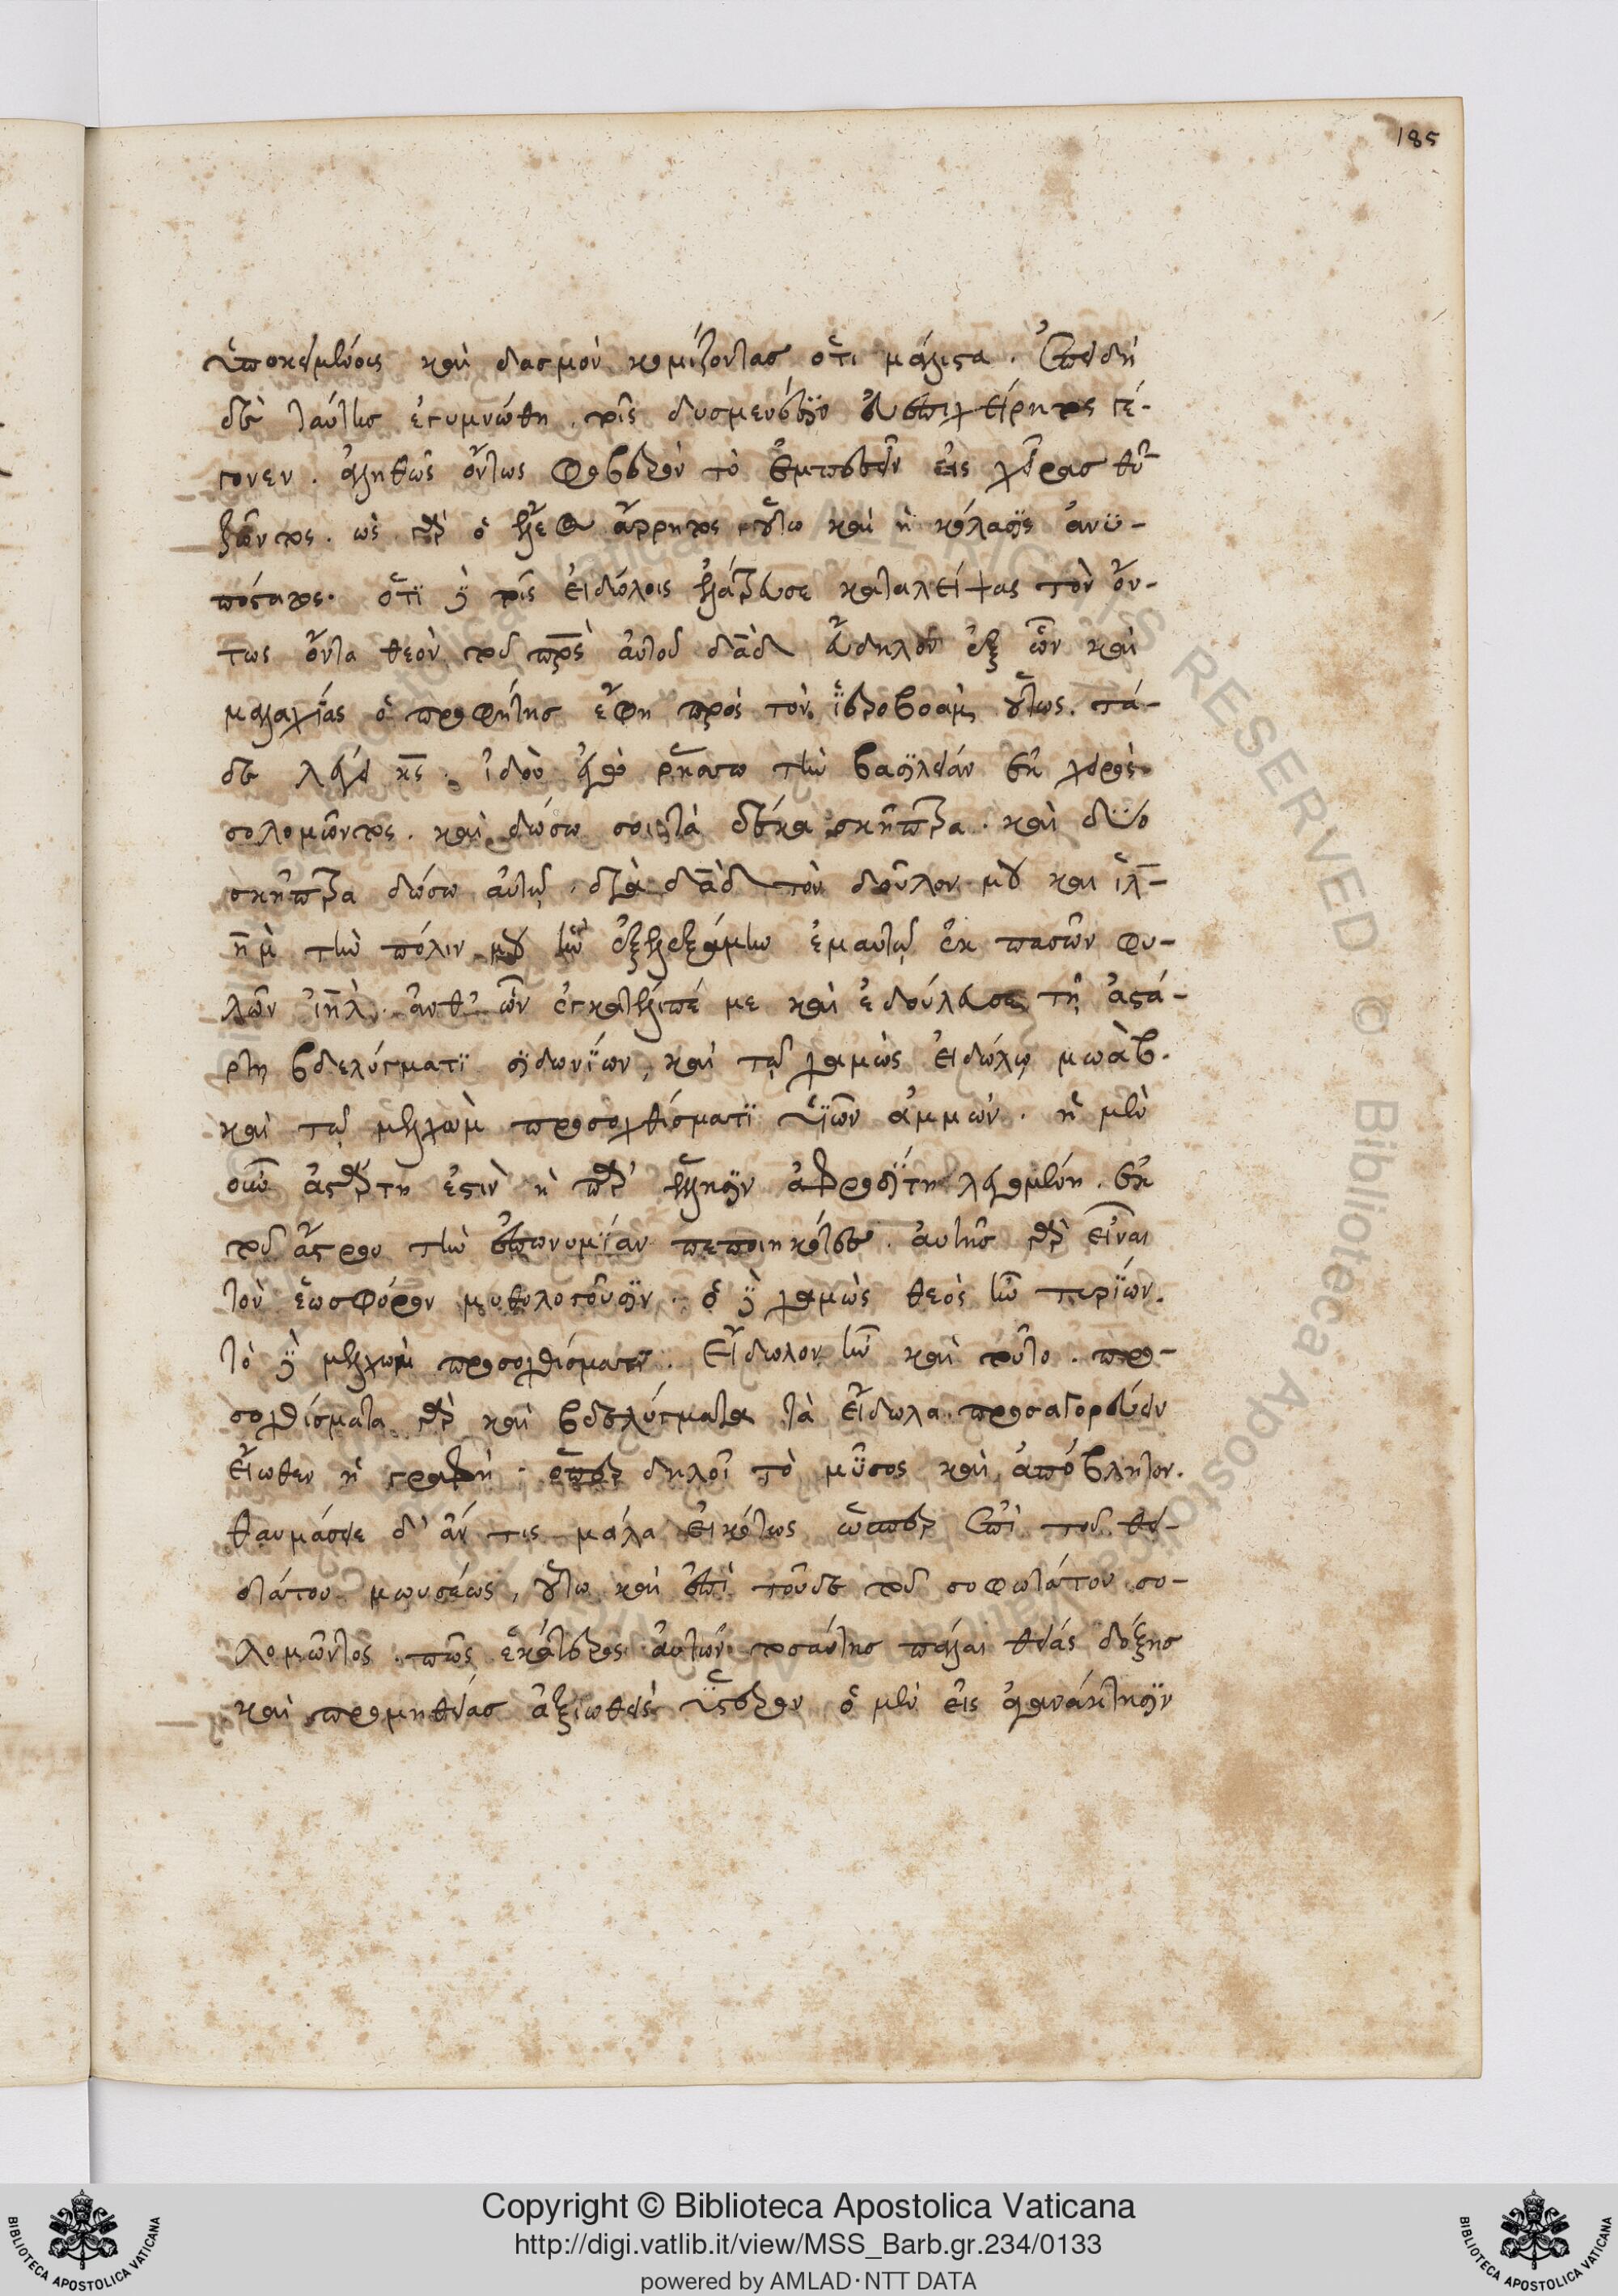 185
ὑποκειμένοις καὶ δασμὸν κομίζοντας ὅτι μάλιστα. Ἐπειδὴ
δὲ ταύτης ἐγυμνώθη, τοῖς δυσμενέσιν εὐεπιχείρητος γέ-
γονεν. ἀληθῶς ὄντως φοβερὸν τὸ ἐμπεσεῖν εἰς χεῖρας θυ
ζῶντος. ὡς γὰρ ὁ ἔλεος ἄρρητος οὕτω καὶ ἡ κόλασις ἀνϋ-
πόστατος. ὅτι δὲ τοῖς εἰδώλοις ἐλάτρευσε καταλείψας τὸν ὄν-
τως ὄντα θεὸν τοῦ πρς αὐτοῦ δαδ εὔδηλον ἐξ ὧν καὶ
μαλαχίας ὁ προφήτης ἔφη πρὸς τὸν ἱεροβοὰμ οὕτως. τά-
δε λέγει κς. ἰδοὺ ἐγὼ ρήσσω τὴν βασιλείαν ἐκ χειρὸς
σολομῶντος. καὶ δώσω σοι τὰ δέκα σκῆπτρα. καὶ δύο
σκῆπτρα δώσω αὐτῷ. διὰ δαδ τὸν δοῦλον μου και ἱλ-
ημ τὴν πόλιν μου ἣν ἐξελεξάμην ἐμαυτῷ ἐκ πασῶν φυ-
λῶν ιηλ. ἀνθ' ὧν ἐγκατέλιπέ με καὶ ἐδούλευσε τῇ ἀστά-
ρτη βδελύγματι σιδωνίων, καὶ τῷ χαμὼς εἰδώλῳ μωὰβ.
καὶ τῷ μελχὼμ προσοχθίσματι υἱῶν ἀμμών. ἡ μὲν
οὖν ἀστάρτη ἐστὶν ἡ παρ' ἕλλησιν ἀφροδίτη λεγομένη. ἐκ
τοῦ ἄστρου τὴν ἐπωνυμίαν πεποιηκότες. αὐτῆς γὰρ εἶναι
τὸν ἑωσφόρον μυθολογοῦσιν. ὁ δὲ χαμὼς θεὸς ἦν τυρίων.
τὸ δὲ μελχὼμ προσοχθίσματι. Εἴδωλον ἦν καὶ τοῦτο. προ-
σοχθίσματα γὰρ καὶ βδελύγματα τὰ εἴδωλα προσαγορεύειν
εἴωθεν ἡ γραφή. ὅπερ δηλοῖ τὸ μῦσος καὶ ἀπόβλητον.
θαυμάσειε δ' ἄν τις μάλα εἰκότως ὥσπερ ἐπὶ τοῦ θει-
οτάτου μωυσέως, οὕτω καὶ ἐπὶ τοῦδε τοῦ σοφωτάτου σο-
λομῶντος. πῶς ἑκάτερος αὐτῶν τοσαύτης πάλαι θείας δόξης
καὶ προμηθείας ἀξιωθεὶς ὕστερον ὁ μὲν εἰς ἀγανάκτησιν
Copyright © Biblioteca Apostolica Vaticana
http://digi.vatlib.it/view/MSS_Barb.gr.234/0133
powered by AMLAD·NTT DATA